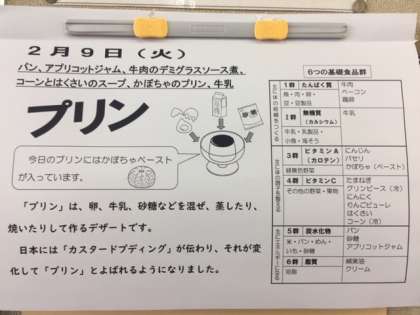 2月9日（火）
パン、アプリコットジャム、牛肉のデミグラスソース煮、
コーンとはくさいのスープ、かぼちゃのプリン、牛乳
プリン
砂糖
今日のプリンにはかぼちゃペースト
が入っています。
「プリン」は、卵、牛乳、砂糖などを混ぜ、蒸したり、
焼いたりして作るデザートです。
日本には「カスタードプディング」が伝わり、それが変
化して「プリン」とよばれるようになりました。
6つの基礎食品群
1群 たんぱく質
魚・肉・卵・
豆・豆製品
牛肉
ベーコン
鶏卵
2群 無機質
（カルシウム）
牛乳・乳製品・
小魚・海そう
牛乳
3群 ビタミンA
（カロテン）
緑黄色野菜
にんじん
パセリ
かぼちゃ（ペースト）
4群 ビタミンC
その他の野菜・果物
たまねぎ
グリンピース（冷）
にんにく
りんごピューレ
はくさい
コーン（冷）
5群 炭水化物
米・パン・めん・
いも・砂糖
パン
砂糖
アプリコットジャム
6群 脂質
油脂
綿実油
クリーム